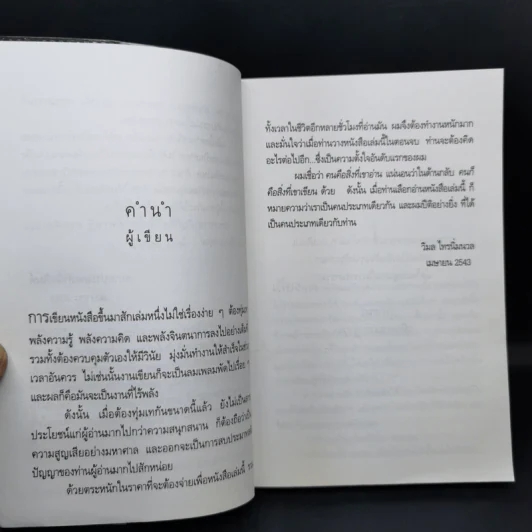 คำนำ
ผู้เขียน
การเขียนหนังสือขึ้นมาสักเล่มหนึ่งไม่ใช่เรื่องง่าย ๆ ต้องทุ่มเท
พลังความรู้ พลังความคิด และพลังจินตนาการลงไปอย่างเต็มที่
รวมทั้งต้องควบคุมตัวเองให้มีวินัย มุ่งมั่นทำงานให้สำเร็จใน
เวลาอันควร ไม่เช่นนั้นงานเขียนก็จะเป็นลมเพลมพัดไปเรื่อย ๆ
และผลก็คือมันจะเป็นงานที่ไร้พลัง
ดังนั้น เมื่อต้องทุ่มเทกันขนาดนี้แล้ว ยังไม่เป็น
ประโยชน์แก่ผู้อ่านมากไปกว่าความสนุกสนาน ก็ต้องถือว่าเป็น
ความสูญเสียอย่างมหาศาล และออกจะเป็นการสบประมาท
ปัญญาของท่านผู้อ่านมากไปสักหน่อย
ด้วยตระหนักในราคาที่จะต้องจ่ายเพื่อหนังสือเล่มนี้
ทั้งเวลาในชีวิตอีกหลายชั่วโมงที่อ่านมัน ผมจึงต้องทำงานหนักมาก
และมั่นใจว่าเมื่อท่านวางหนังสือเล่มนี้ในตอนจบ ท่านจะต้องคิด
อะไรต่อไปอีก...ซึ่งเป็นความตั้งใจอันดับแรกของผม
ผมเชื่อว่า คนคือสิ่งที่เขาอ่าน แน่นอนว่าในด้านกลับ คนก็
คือสิ่งที่เขาเขียน ด้วย ดังนั้น เมื่อท่านเลือกอ่านหนังสือเล่มนี้ ก็
หมายความว่าเราเป็นคนประเภทเดียวกัน และผมปีติอย่างยิ่ง ที่ได้
เป็นคนประเภทเดียวกับท่าน
วิมล ไทรนิ่มนวล
เมษายน 2543